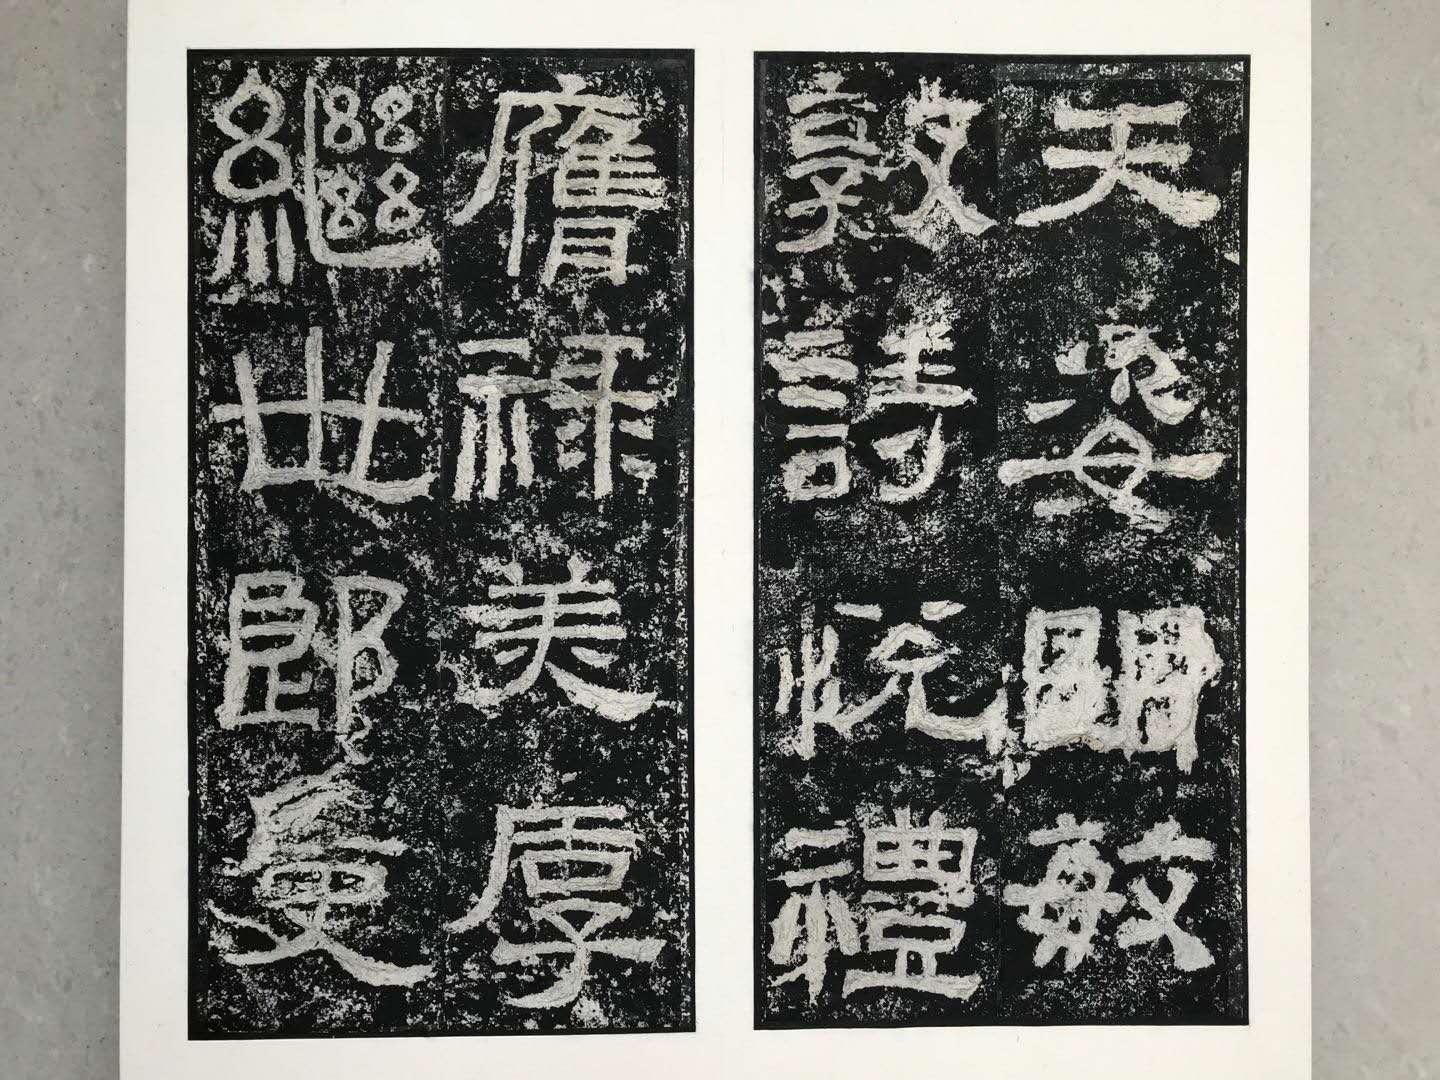 天姿明敏
敦詩悅禮
膺祿美厚
繼世郎吏